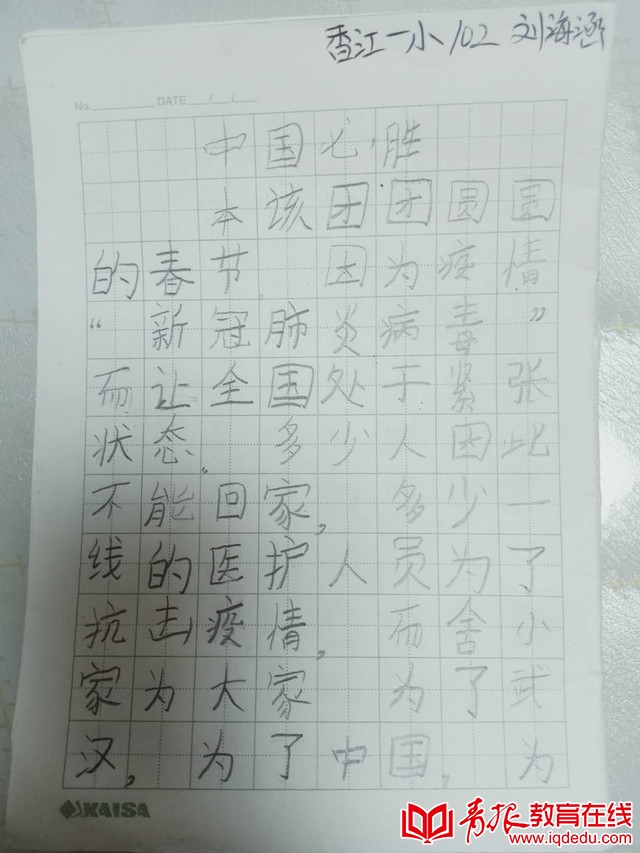 香江一小102 刘海涵
No. DATE / /
中国必胜
本该团团圆圆
的春节，因为疫情
“新冠肺炎病毒”
而让全国处于紧张
状态。多少人因此
不能回家，多少一
线的医护人员为了
抗击疫情，而舍小
家为大家 为了武
汉，为了中国，为
KAISA
青报教育在线
www.iqdedu.com